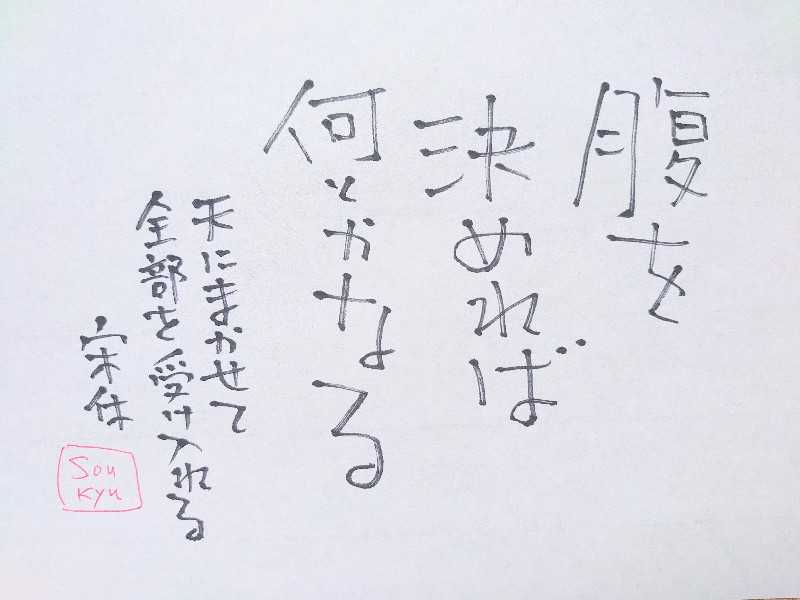 腹を
決めれば
何とかなる
天にまかせて
全部を受け入れる
宗休
Sou
Kyu